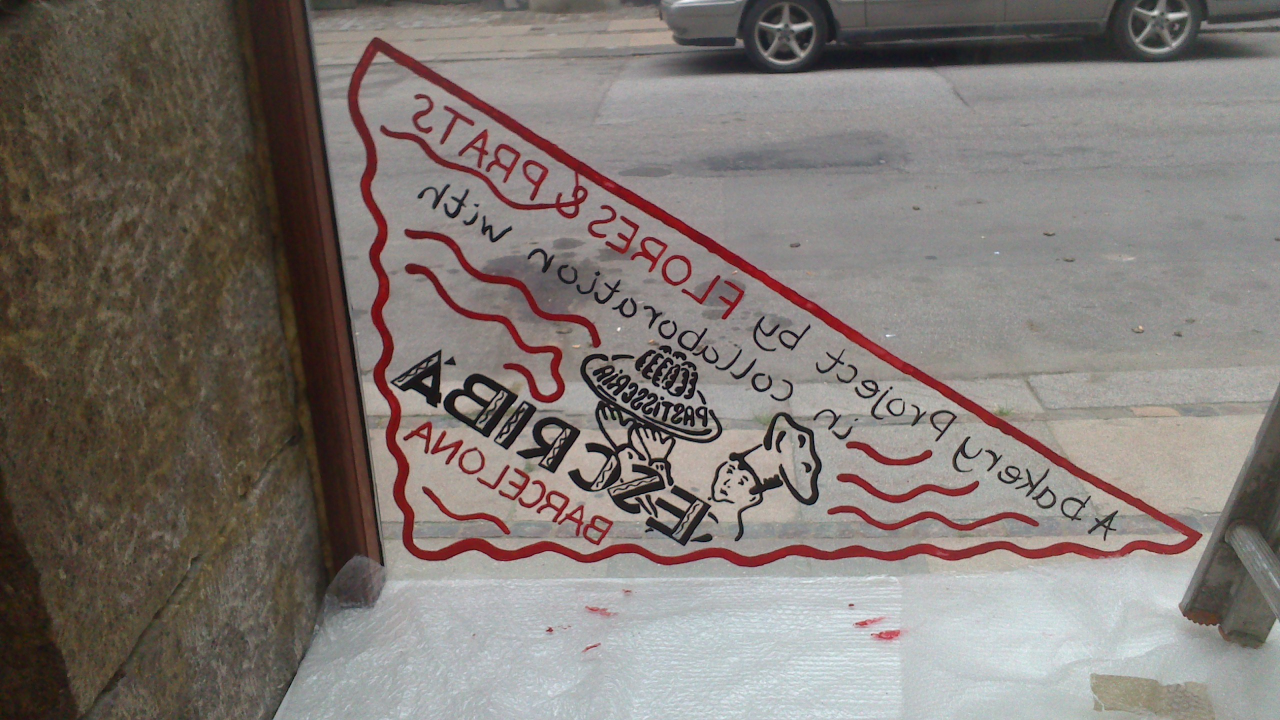 A bakery project by FLORES & PRATS
in collaboration with
PASTISSERIA
ESCRIBÀ
BARCELONA